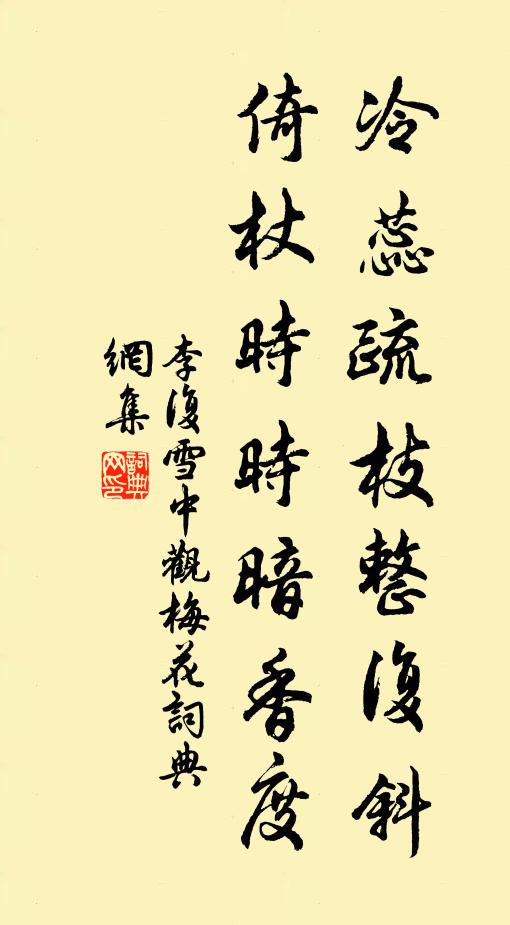 冷蕊疏枝整復斜
倚杖時時暗香度
李復雪中觀梅花詞典
網集
詞典
网印